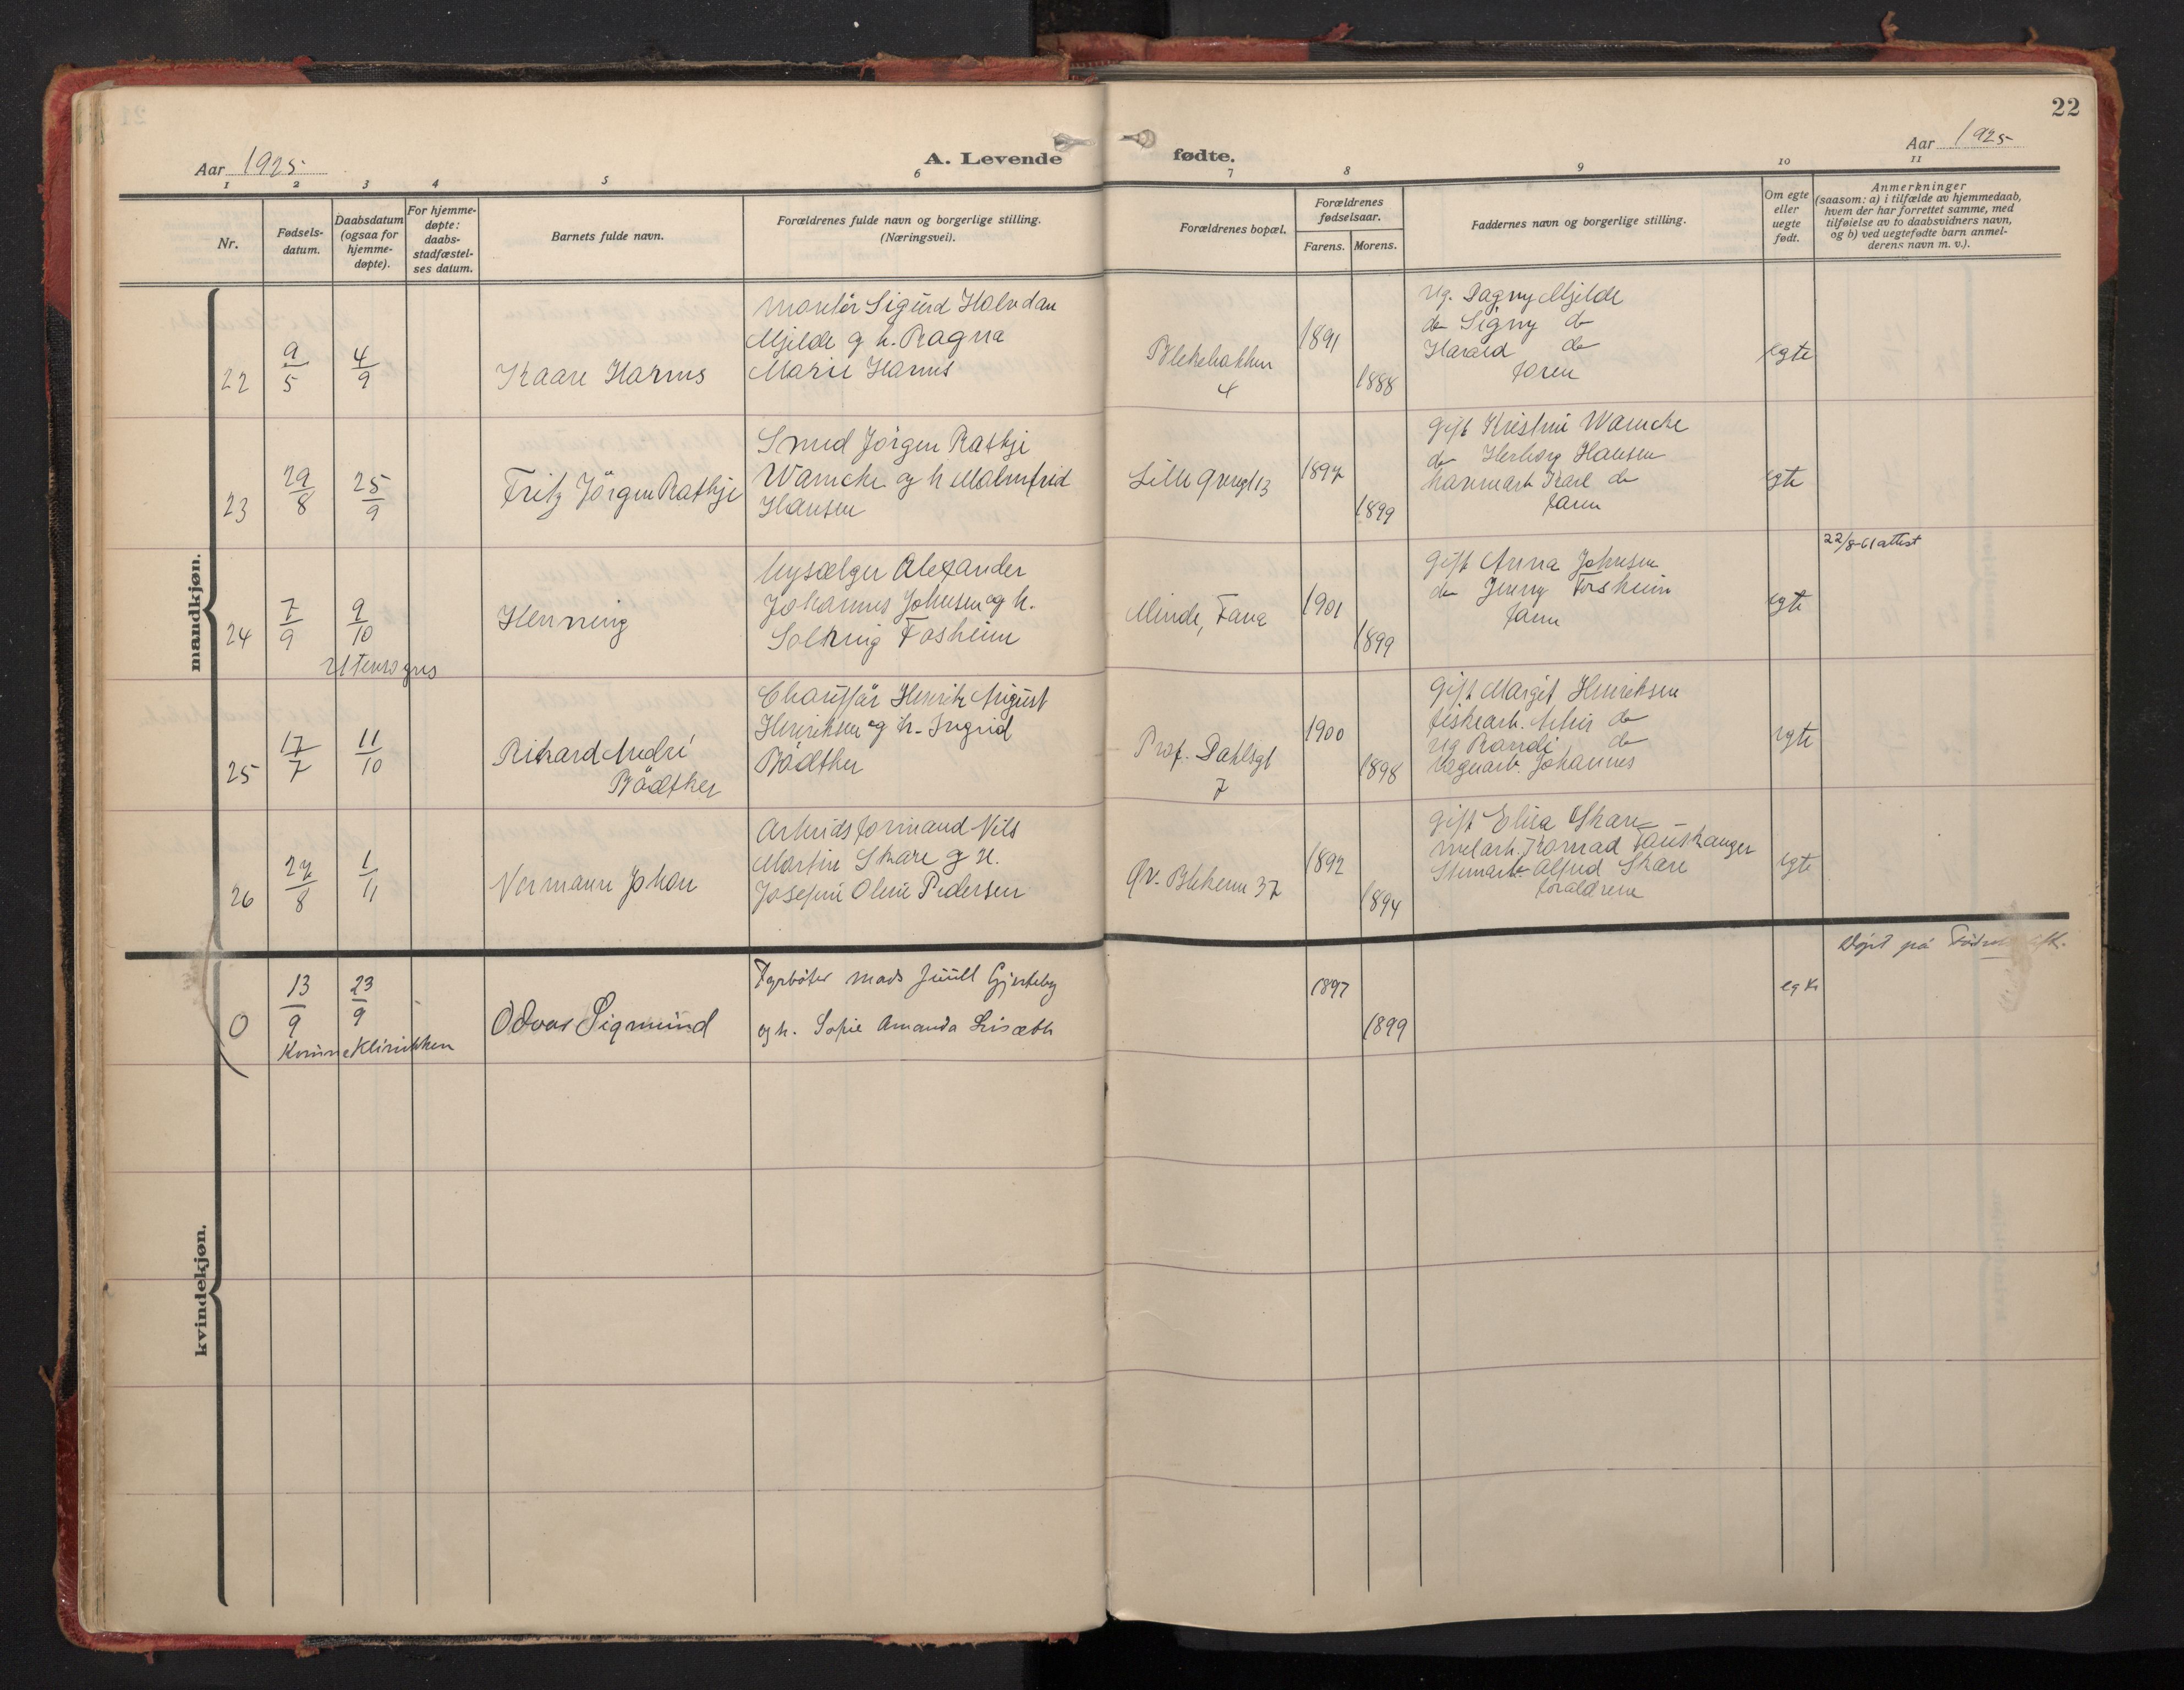 22
Aar 1925
A. Levende
fødte.
Aar 1925
1 2 3 4 5 6 7 8 9 10 11
Nr.
Fødsels-
datum.
Daabsdatum
(ogsaa for
hjemme-
døpte).
For hjemme-
døpte:
daabs-
stadfæstel-
ses datum.
Barnets fulde navn.
Forældrenes fulde navn og borgerlige stilling.
(Næringsvei).
Forældrenes bopæl.
Forældrenes
fødselsaar.
Farens. Morens.
Faddernes navn og borgerlige stilling.
Om egte
eller
uegte
født.
Anmerkninger
(saasom: a) i tilfælde av hjemmedaab,
hvem der har forrettet samme, med
tilføielse av to daabsvidners navn,
og b) ved uegtefødte barn anmel-
derens navn m. v.).
mandkjøn.
22
9/5
4/9
Kaare Harms
Montör Sigurd Halvdan
Mjelde og h. Ragna
Marie Harms
Blekebakken
4
1891
1888
Ug. Dagny Mjelde
do Signy do
Harald do
foren
egte
23
29/8
25/9
Fritz Jörgen Rathje
Smed Jörgen Rathje
Warncke og h Malmfrid
Hansen
Lille Øvregt 13
1897
1899
Gift Kristine Warncke
do Herborg Hansen
havnearb Karl do
foren
egte
24
7/9
9/10
Utensogns
Henning
Avysælger Alexander
Johannes Johnsen og h.
Solveig Fosheim
Minde, Fana
1901
1899
Gift Anna Johnsen
do Jenny Fosheim
foren
egte
22/8-61 attest
25
17/7
11/10
Rikard André
Bödtker
Chauffør Henrik August
Henriksen og h. Ingrid
Bödtker
Prof. Dahlsgt
7
1900
1898
Gift Margit Henriksen
fiskearb. do
Ug Randi do
Johannes
egte
26
27/8
1/11
Normann Johan
Arbeidsformand Nils
Martin Skare og H.
Josefine Oline Pedersen
Øv. Blekevn 37
1892
1894
Gift Elisa Skare
Konrad Tauskanger
Alfred Skare
forældrene
egte
kvindekjøn.
0
13/9
23/9
Kvinneklinikken
Odvar Sigmund
Fyrbøter Mads Juull Gjerteby
og h. Sofie Amanda Lisæth
1897
1899
egte
Døpt på